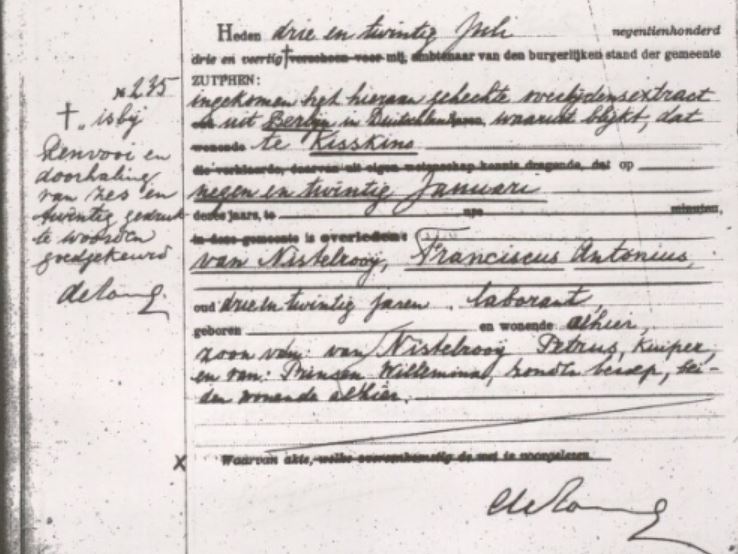 Heden drie en twintig Juli negentienhonderd
drie en veertig † verscheen voor mij, ambtenaar van den burgerlijken stand der gemeente
ZUTPHEN:
ingekomen het hieraan gehechte overlijdensextract
uit Berlyn in Duitschland, waaruit blijkt, dat
wonende te Kisskins
die verklaarde, daarvan uit eigen wetenschap kennis dragende, dat op
negen en twintig Januari
dezes jaars, te ure minuten,
in deze gemeente is overleden:
van Nistelrooy, Franciscus Antonius,
oud drie en twintig jaren, laborant,
geboren en wonende alhier,
zoon van: van Nistelrooy Petrus, kuiper,
en van: Prinsen Willemina, zonder beroep, bei-
den wonende alhier.
Waarvan akte, welke overeenkomstig de wet is voorgelezen.
de Jong
No 235
† is bij
Renvooi en
doorhaling
van zes en
twintig gedruk-
te woorden
goedgekeurd
de Jong
x